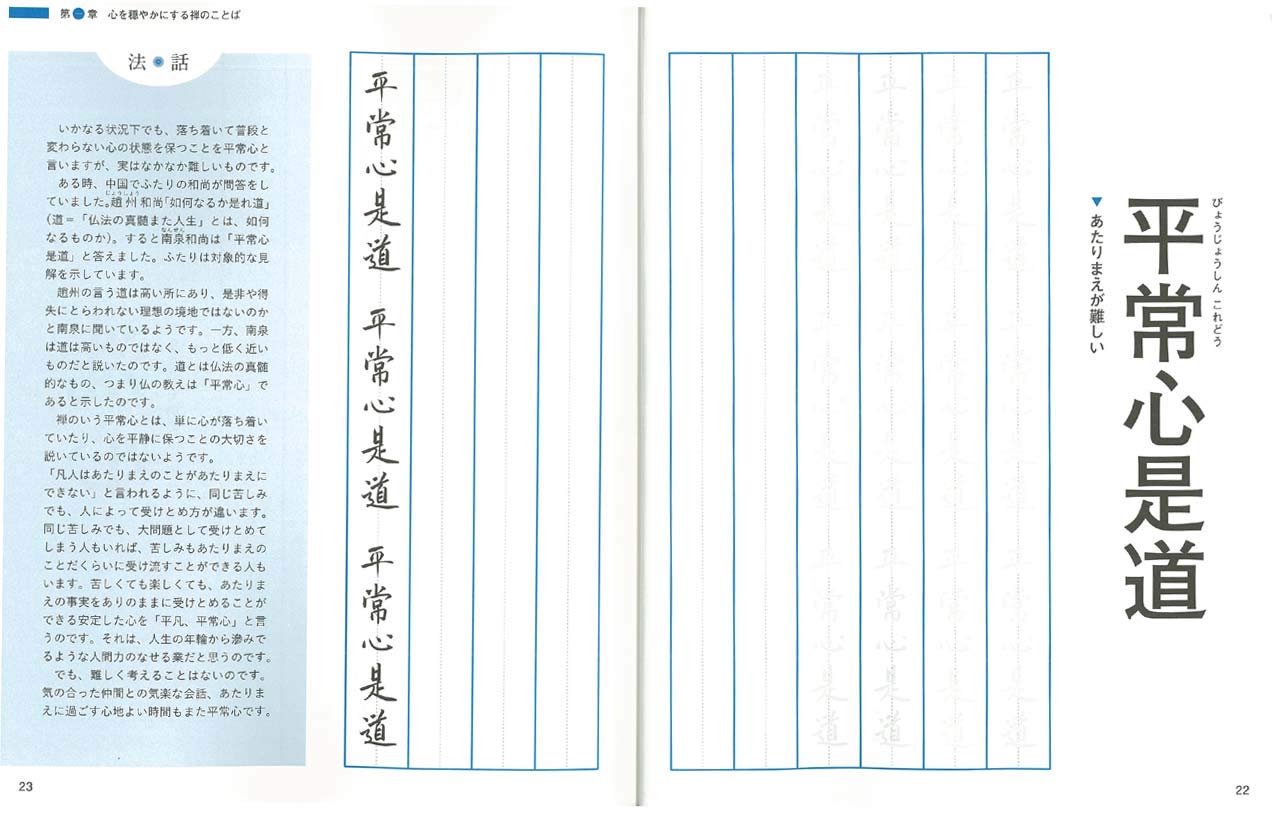 びょうじょうしん これどう
平常心是道
▼あたりまえが難しい
22
第一章 心を穏やかにする禅のことば
平常心是道 平常心是道 平常心是道
法話
いかなる状況下でも、落ち着いて普段と
変わらない心の状態を保つことを平常心と
言いますが、実はなかなか難しいものです。
ある時、中国でふたりの和尚が問答をし
じょうしょう
ていました。趙州和尚「如何なるか是れ道」
(道＝「仏法の真髄また人生」とは、如何
なんせん
なるものか)。すると南泉和尚は「平常心
是道」と答えました。ふたりは対象的な見
解を示しています。
趙州の言う道は高い所にあり、是非や得
失にとらわれない理想の境地ではないのか
と南泉に聞いているようです。一方、南泉
は道は高いものではなく、もっと低く近い
ものだと説いたのです。道とは仏法の真髄
的なもの、つまり仏の教えは「平常心」で
あると示したのです。
禅のいう平常心とは、単に心が落ち着い
ていたり、心を平静に保つことの大切さを
説いているのではないようです。
「凡人はあたりまえのことがあたりまえに
できない」と言われるように、同じ苦しみ
でも、人によって受けとめ方が違います。
同じ苦しみでも、大問題として受けとめて
しまう人もいれば、苦しみもあたりまえの
ことだくらいに受け流すことができる人も
います。苦しくても楽しくても、あたりま
えの事実をありのままに受けとめることが
できる安定した心を「平凡、平常心」と言
うのです。それは、人生の年輪から滲みで
るような人間力のなせる業だと思うのです。
でも、難しく考えることはないのです。
気の合った仲間との気楽な会話、あたりま
えに過ごす心地よい時間もまた平常心です。
23